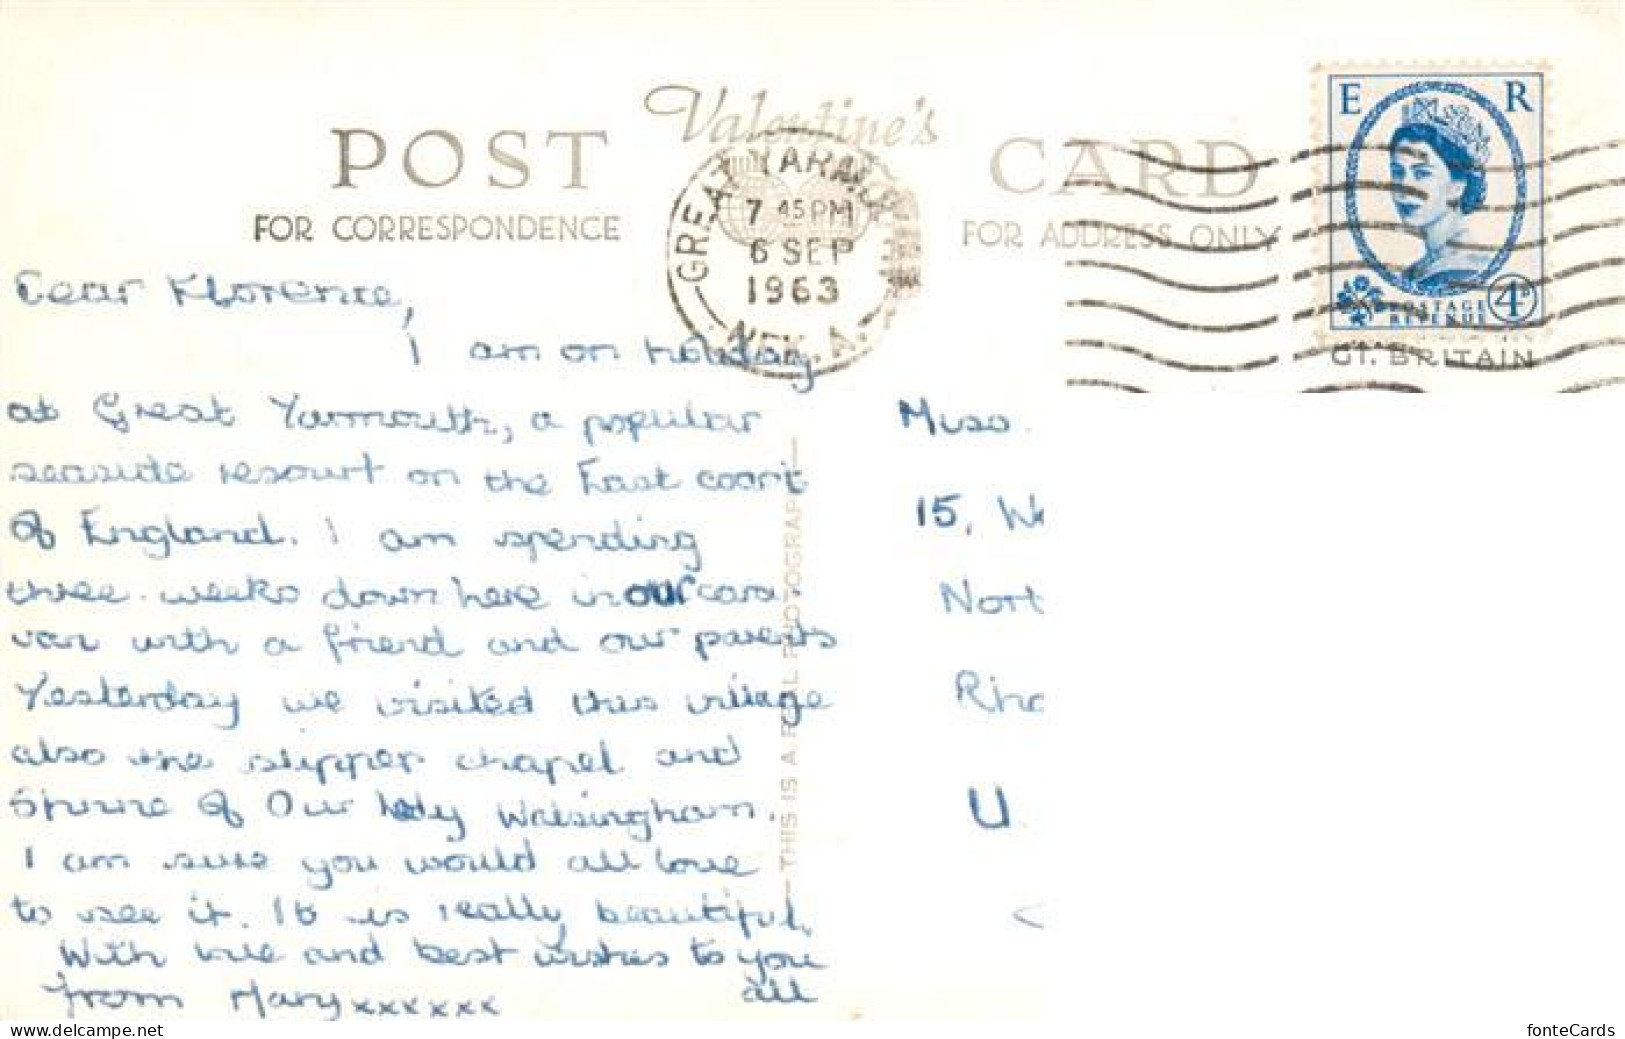 Valentine's
POST CARD
FOR CORRESPONDENCE
FOR ADDRESS ONLY
GREAT YARMOUTH
7 45 PM
6 SEP
1963
NFK. A.
E R
POSTAGE
REVENUE
4D
GT. BRITAIN
Dear Florence,
I am on holiday
at Great Yarmouth, a popular
seaside resourt on the East coast
of England. I am spending
three weeks down here in our cara-
van with a friend and our parents
Yesterday we visited this village
also the slipper chapel and
Shrine of Our Lady Walsingham.
I am sure you would all love
to see it. It is really beautiful.
With love and best wishes to you
all
from Mary xxxxxx
THIS IS A REAL PHOTOGRAPH
Miss
15, We
Nort
Rho
U.
www.delcampe.net
fonteCards